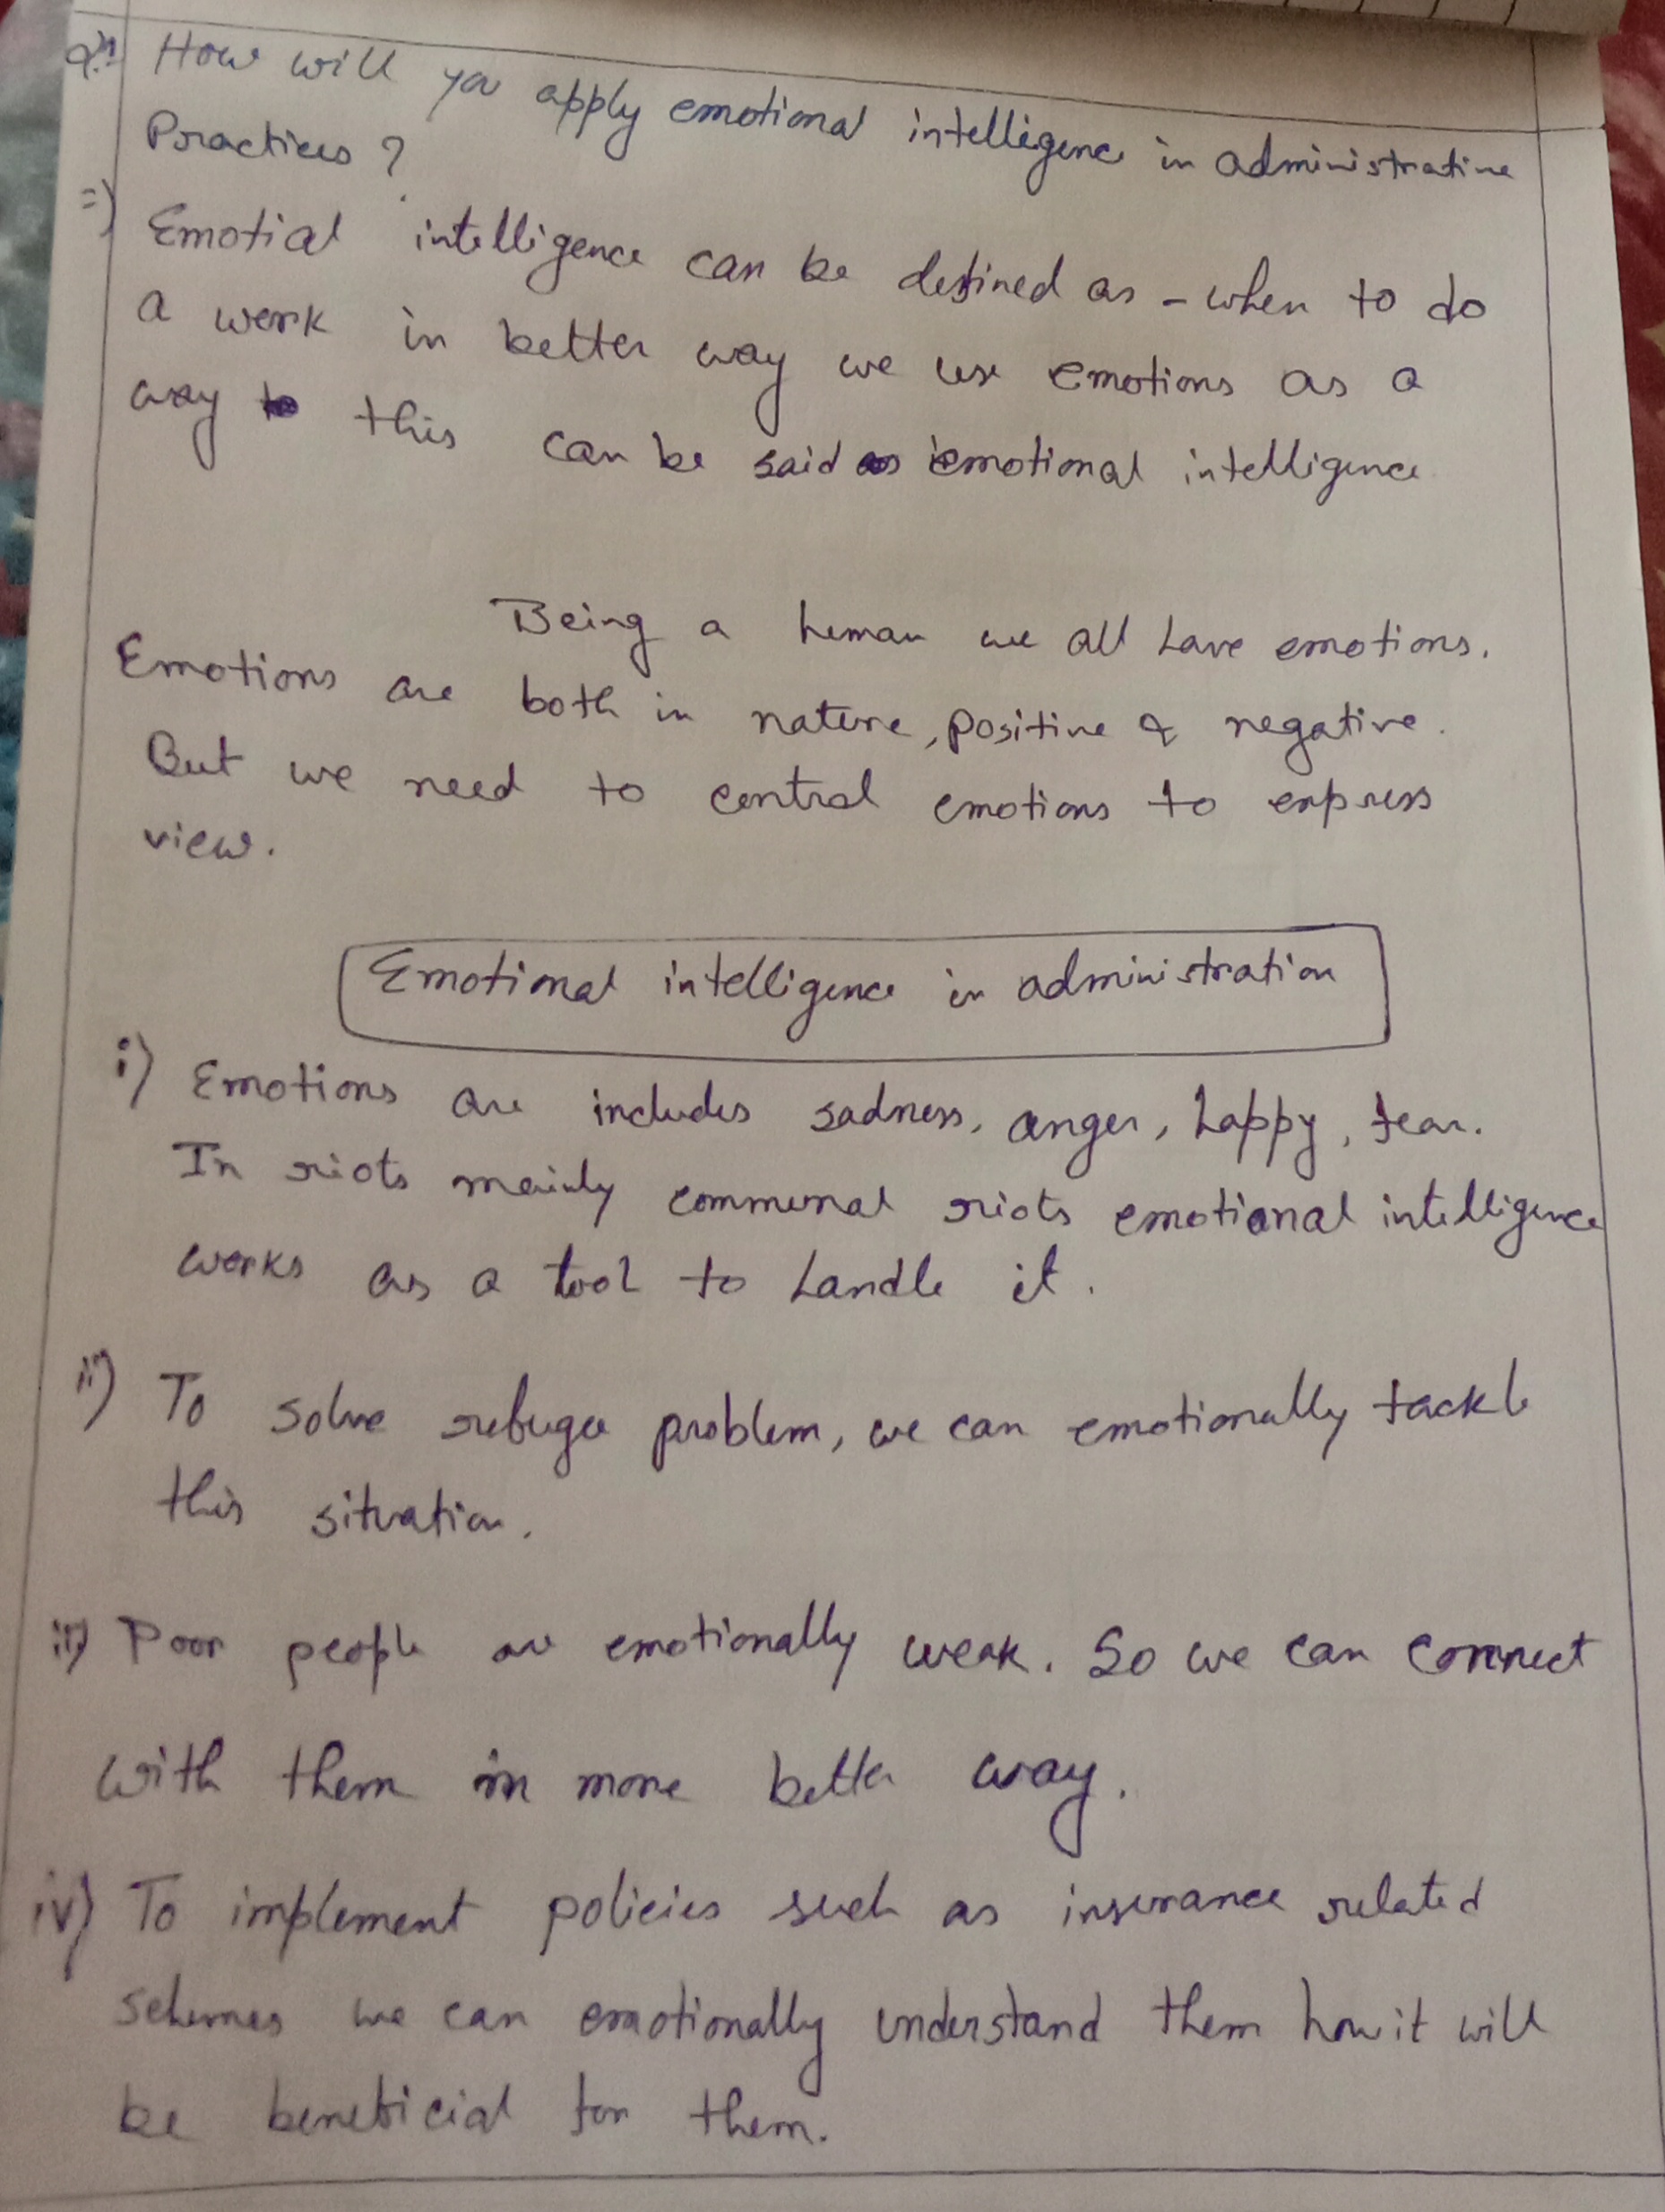 Qn. How will you apply emotional intelligence in administrative
Practices ?
=) Emotial intelligence can be defined as - when to do
a work in better way we use emotions as a
way this can be said as emotional intelligence
Being a human we all have emotions.
Emotions are both in nature, positive & negative.
But we need to control emotions to express
view.
Emotional intelligence in administration
i) Emotions are includes sadness, anger, happy, fear.
In riots mainly communal riots emotional intelligence
works as a tool to handle it.
ii) To solve refugee problem, we can emotionally tackle
this situation.
iii) Poor people are emotionally weak. So we can connect
with them in more better way.
iv) To implement policies such as insurance related
schemes we can emotionally understand them how it will
be beneficial for them.